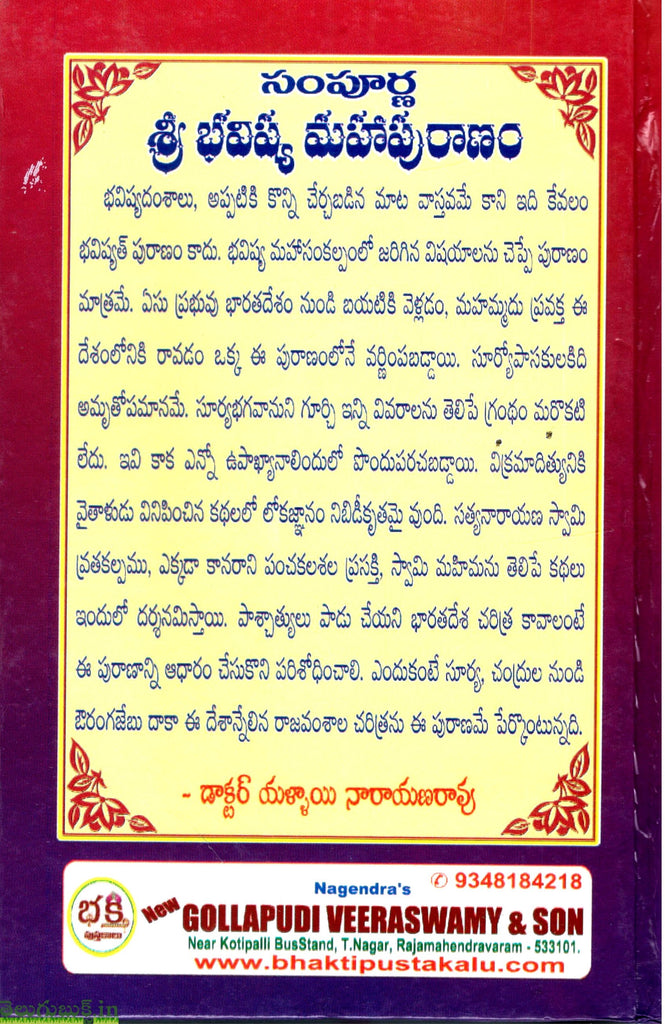 సంపూర్ణ
శ్రీ భవిష్య మహాపురాణం
భవిష్యదంశాలు, అప్పటికి కొన్ని చేర్చబడిన మాట వాస్తవమే కాని ఇది కేవలం
భవిష్యత్ పురాణం కాదు. భవిష్య మహాసంకల్పంలో జరిగిన విషయాలను చెప్పే పురాణం
మాత్రమే. ఏసు ప్రభువు భారతదేశం నుండి బయటికి వెళ్లడం, మహమ్మదు ప్రవక్త ఈ
దేశంలోనికి రావడం ఒక్క ఈ పురాణంలోనే వర్ణింపబడ్డాయి. సూర్యోపాసకులకిది
అమృతోపమానమే. సూర్యభగవానుని గూర్చి ఇన్ని వివరాలను తెలిపే గ్రంథం మరొకటి
లేదు. ఇవి కాక ఎన్నో ఉపాఖ్యానాలిందులో పొందుపరచబడ్డాయి. విక్రమాదిత్యునికి
వైతాళుడు వినిపించిన కథలలో లోకజ్ఞానం నిబిడీకృతమై వుంది. సత్యనారాయణ స్వామి
వ్రతకల్పము, ఎక్కడా కానరాని పంచకలశల ప్రసక్తి, స్వామి మహిమను తెలిపే కథలు
ఇందులో దర్శనమిస్తాయి. పాశ్చాత్యులు పాడు చేయని భారతదేశ చరిత్ర కావాలంటే
ఈ పురాణాన్ని ఆధారం చేసుకొని పరిశోధించాలి. ఎందుకంటే సూర్య, చంద్రుల నుండి
ఔరంగజేబు దాకా ఈ దేశాన్నేలిన రాజవంశాల చరిత్రను ఈ పురాణమే పేర్కొంటున్నది.
- డాక్టర్ యళ్ళాయి నారాయణరావు
Nagendra's ✆ 9348184218
భక్తి
పుస్తకాలు
New GOLLAPUDI VEERASWAMY & SON
Near Kotipalli BusStand, T.Nagar, Rajamahendravaram - 533101.
www.bhaktipustakalu.com
తెలుగుబుక్స్.in